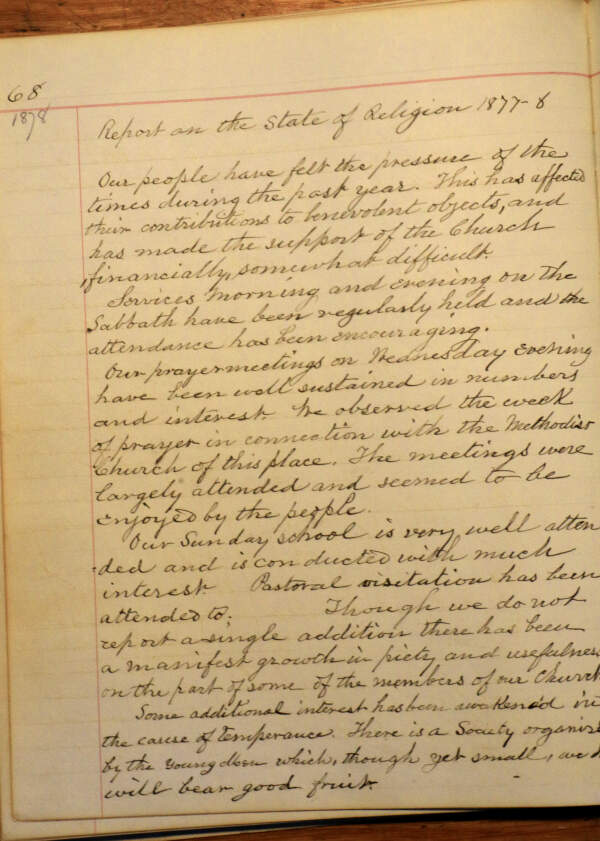 68
1878
Report on the State of Religion 1877-8
Our people have felt the pressure of the
times during the past year. This has affected
their contributions to benevolent objects, and
has made the support of the Church
financially, somewhat difficult.
Services morning and evening on the
Sabbath have been regularly held and the
attendance has been encouraging.
Our prayermeetings on Wednesday evening
have been well sustained in numbers
and interest. We observed the week
of prayer in connection with the Methodist
Church of this place. The meetings were
largely attended and seemed to be
enjoyed by the people.
Our Sunday school is very well atten
ded and is conducted with much
interest. Pastoral visitation has been
attended to; Though we do not
report a single addition there has been
a manifest growth in piety and usefulness
on the part of some of the members of our Church
Some additional interest has been awakened in
the cause of temperance. There is a Society organiz
by the young men which, though yet small, we
will bear good fruit.